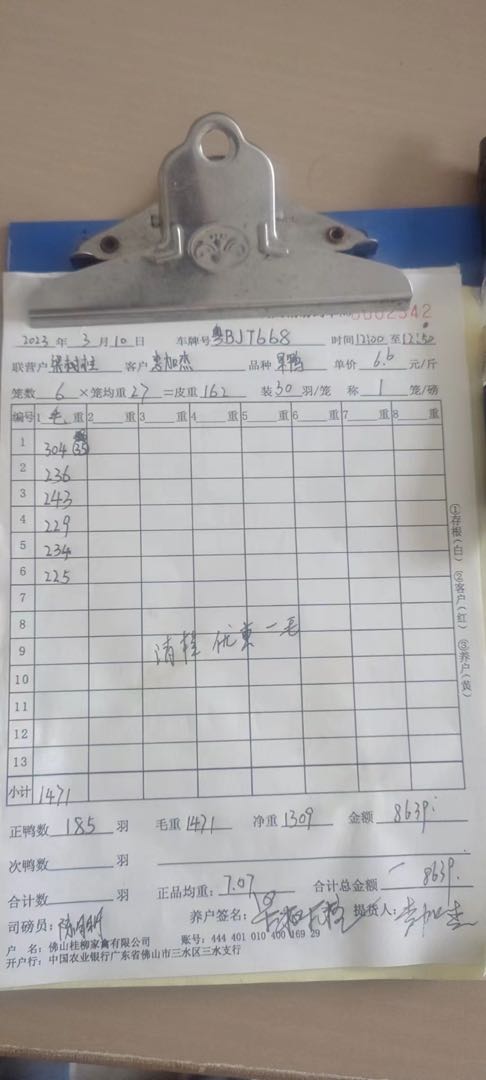 0002342
2023 年 3 月 10 日 车牌号 粤BJT668 时间 12:00 至 12:50
联营户 客户 李加杰 品种 单价 6.6 元/斤
笼数 6 ×笼均重 27 =皮重 162 装 30 羽/笼 称 1 笼/磅
编号 1 毛 重 2 重 3 重 4 重 5 重 6 重 7 重 8 重
1 304 (35)
2 236
3 243
4 229
5 234
6 225
7
8
9
清棚 优惠一毛
10
11
12
13
小计 1471
①存根(白) ②客户(红) ③养户(黄)
正鸭数 185 羽 毛重 1471 净重 1309 金额 8639.
次鸭数 羽
合计数 羽 正品均重: 7.07 合计总金额 8639.
司磅员: 养户签名: 提货人: 李加杰
户 名: 佛山桂柳家禽有限公司 账号: 444 401 010 400 169 29
开户行: 中国农业银行广东省佛山市三水区三水支行